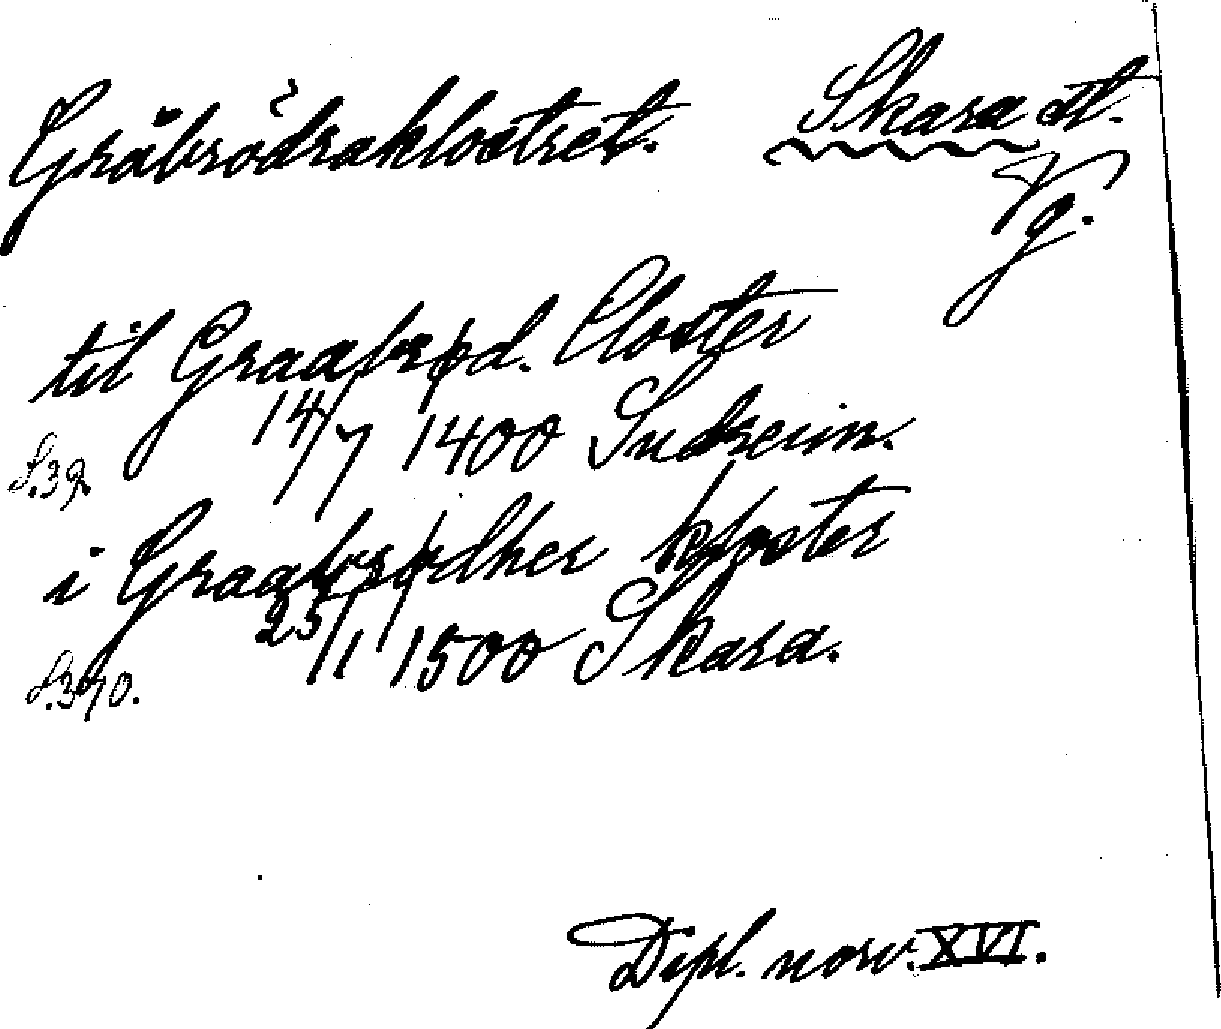 Gråbrödraklostret. Skara st.
Vg.
til Graabrød. Closter
14/7 1400 Sudreim.
S.39.
i Graabrødher kloster
25/1 1500 Skara.
S.370.
Dipl. norv. XVI.